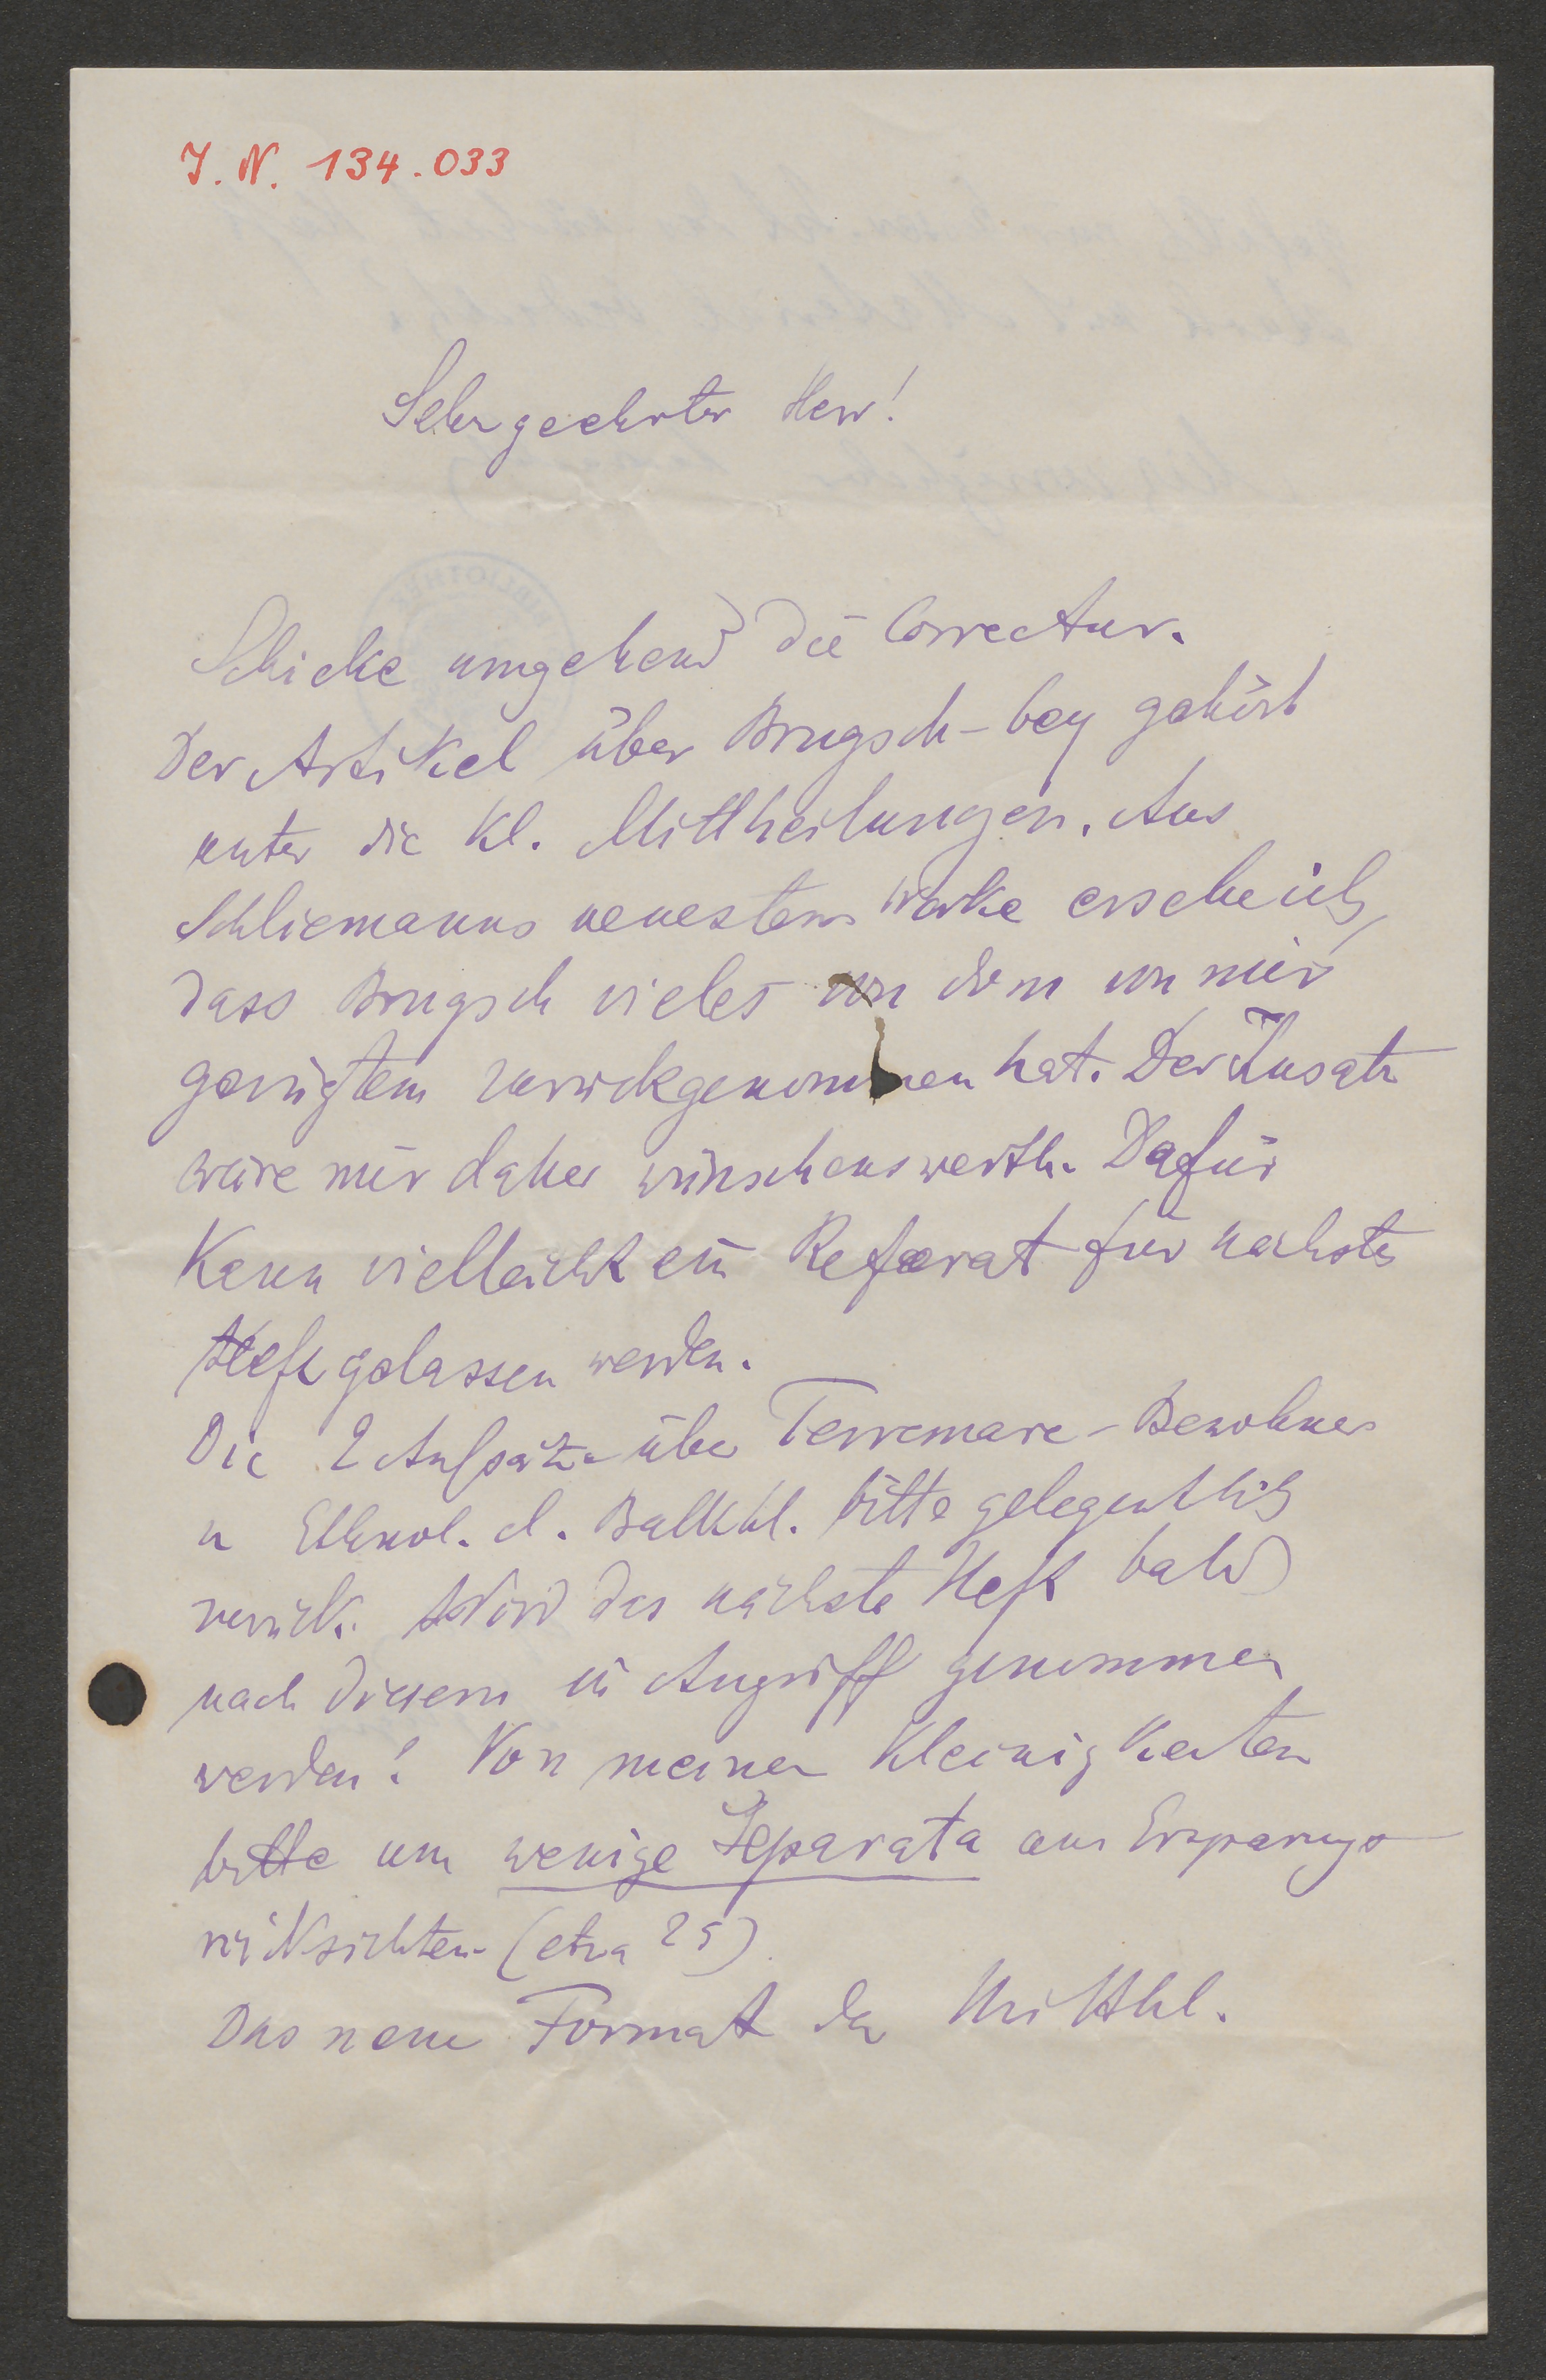 J. N. 134.033
Sehr geehrter Herr!
Schicke umgehend die Correctur.
Der Artikel über Brugsch-bey gehört
unter die kl. Mittheilungen. Aus
Schliemanns neuestem Werke ersehe ich,
dass Brugsch vieles von dem von mir
gerügtem zurückgenommen hat. Der Zusatz
wäre mir daher wünschenswerth. Dafür
kann vielleicht ein Referat für nächstes
Heft gelassen werden.
Die 2 Aufsätze über Terremare-Bewohner
u Ethnol. d. Balkhl. bitte gelegentlich
zurück. Wird das nächste Heft bald
nach diesem in Angriff genommen
werden? Von meinen Kleinigkeiten
bitte um wenige Separata aus Ersparungs
rücksichten (etwa 25)
Das neue Format der Mitthl.